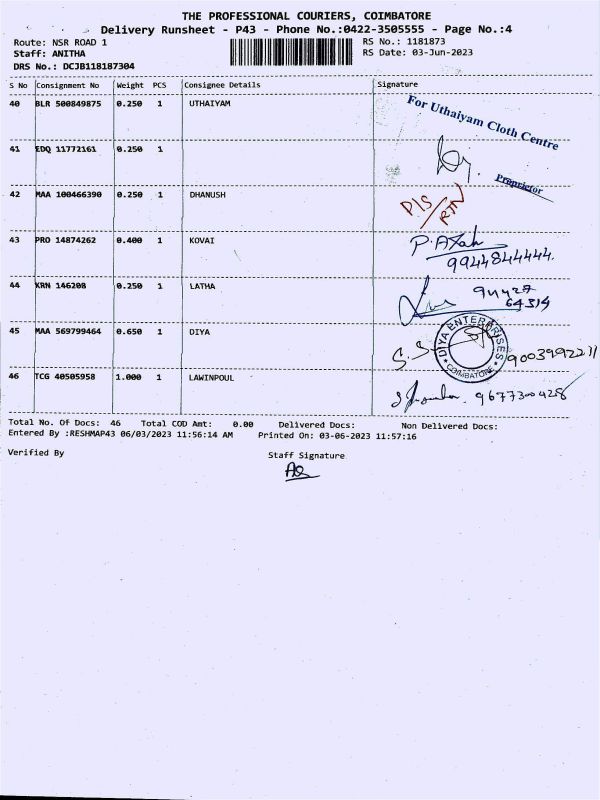 THE PROFESSIONAL COURIERS, COIMBATORE
Delivery Runsheet - P43 - Phone No.:0422-3505555 - Page No.:4
Route: NSR ROAD 1 RS No.: 1181873
Staff: ANITHA RS Date: 03-Jun-2023
DRS No.: DCJB118187304
S No Consignment No Weight PCS Consignee Details Signature
40 BLR 500849875 0.250 1 UTHAIYAM
For Uthaiyam Cloth Centre
41 EDQ 11772161 0.250 1
Proprietor
42 MAA 100466390 0.250 1 DHANUSH P/S/RTN
43 PRO 14874262 0.400 1 KOVAI
9944844444.
44 KRN 146208 0.250 1 LATHA
64314
45 MAA 569799464 0.650 1 DIYA
DIYA ENTERPRISES
COIMBATORE
46 TCG 40505958 1.000 1 LAWINPOUL
9677300428
Total No. Of Docs: 46 Total COD Amt: 0.00 Delivered Docs: Non Delivered Docs:
Entered By :RESHMAP43 06/03/2023 11:56:14 AM Printed On: 03-06-2023 11:57:16
Verified By Staff Signature